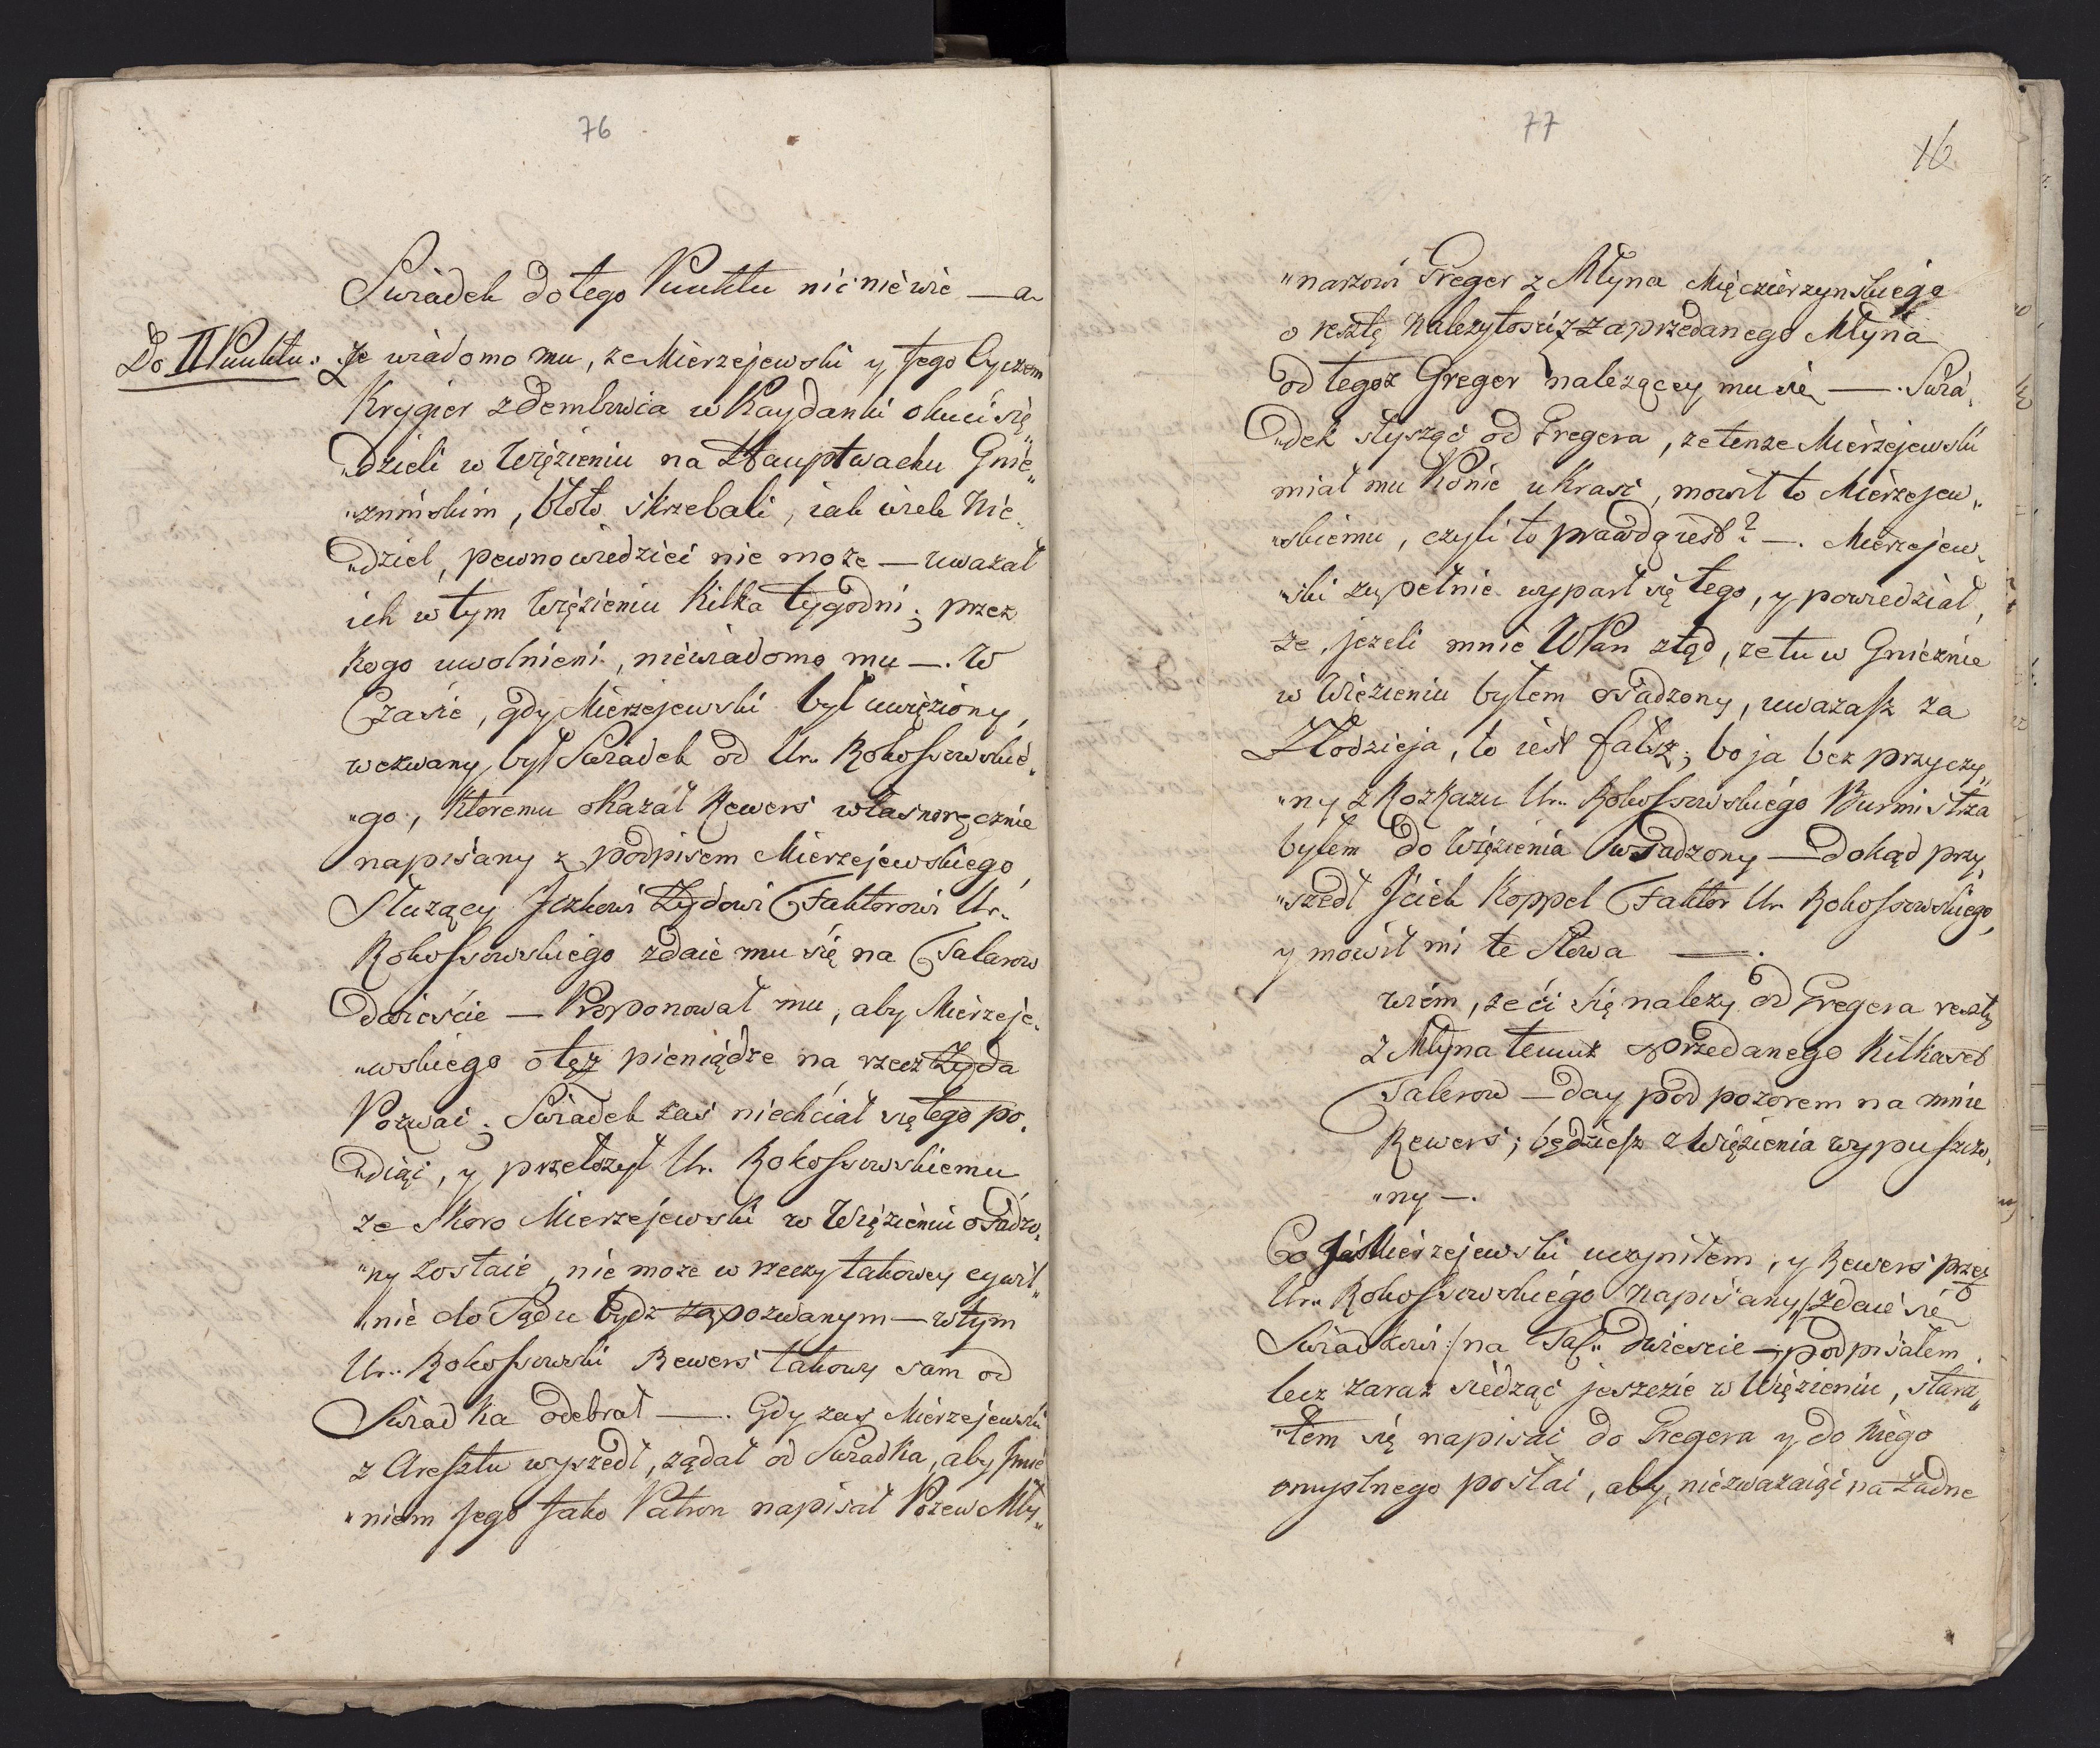 76
Swiadek do tego Punktu nic nie wie —a
Do II Punktu. Je wiadomo mu, ze Mierzejewski y Jego Oyczem
Krygier z Dembowca w Kaydanki okuci się„
„dzieli w Więzieniu na Hauptwachu Gnie„
„znińskim, błoto skrzebali, iak wiele Nie„
„dziel, pewno wiedzieć nie może — uważał
ich w tym Więzieniu kilka tygodni; przez
kogo uwolnieni, niewiadomo mu —. W
Czasie, gdy Mierzejewski był uwięziony,
wezwany był Swiadek od Ur. Rokossowskie„
„go, ktoremu okazał Rewers własnoręcznie
napisany z podpisem Mierzejewskiego,
Służący Jezkowi Zydowi Faktorowi Ur.
Rokossowskiego zdaie mu się na Talarow
dwieście — Proponował mu, aby Mierzeje„
„wskiego o też pieniądze na rzecz Zyda
Pozwać; Swiadek zaś niechciał się tego po„
„diąć, y przełożył Ur. Rokossowskiemu
ze skoro Mierzejewski w Więzieniu osadzo„
„ny zostaie, nie może w rzeczy takowey cywil„
„nie do Sądu bydź zapozwanym — w tym
Ur. Rokossowski Rewers takowy sam od
Swiadka odebrał —. Gdy zaś Mierzejewski
z Aresztu wyszedł, żądał od Swiadka, aby Jmie„
„niem Jego Jako Patron napisał Pozew Mły„
77
16
„narzowi Greger z Młyna Mięczierzynskiego
o resztę Należytości z zaprzedanego Młyna
od tegoż Greger należącey mu się —. Swia„
„dek słysząc od Gregera, ze tenze Mierzejewski
miał mu Konie ukraść, mowił to Mierzejew„
„skiemu, czyli to prawdą iest? —. Mierzejew„
„ski zupełnie wyparł się tego, y powiedział,
ze, jeżeli mnie WPan ztąd, ze tu w Gnieznie
w Więzieniu byłem osadzony, uważasz za
Złodzieja, to iest fałsz; bo ja bez przyczy„
„ny z Rozkazu Ur. Rokossowskiego Burmistrza
byłem do Więzienia wsadzony — dokąd przy„
„szedł Jciek Koppel Faktor Ur. Rokossowskiego,
y mowił mi te Słowa —.
wiem, ze ci się należy od Gregera reszty
z Młyna temuż sprzedanego Kilkaset
Talerow — day pod pozorem na mnie
Rewers; będziesz z Więzienia wypuszczo„
„ny —.
Co Ja Mierzejewski uczyniłem, y Rewers przez
Ur. Rokossowskiego napisany /: zdaie się
Swiadkowi :/ na Tal. dwieście — podpisałem.
lecz zaraz siedząc jeszcze w Więzieniu, stara„
„łem się napisać do Gregera y do Niego
omyslnego posłać, aby, niezważaiąc na żadne